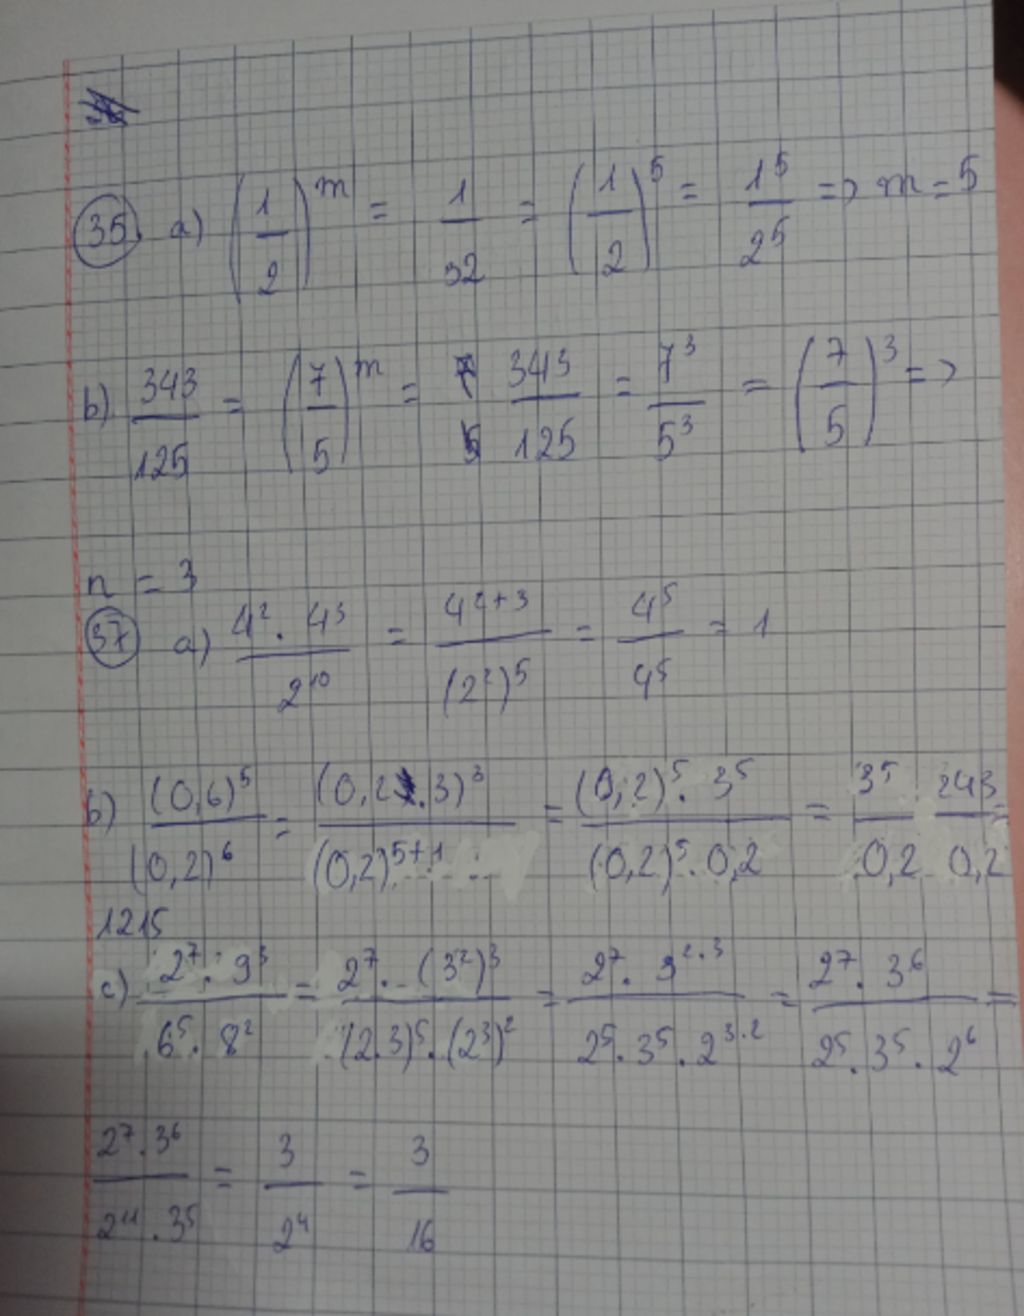 35. a) (1/2)^m = 1/32 = (1/2)^5 = 1^5/2^5 => m = 5
b) 343/125 = (7/5)^m = 343/125 = 7^3/5^3 = (7/5)^3 =>
n = 3
37 a) 4^2 . 4^3/2^10 = 4^(2+3)/(2^2)^5 = 4^5/4^5 = 1
b) (0,6)^5/(0,2)^6 = (0,2 . 3)^3/(0,2)^(5+1) = (0,2)^5 . 3^5/(0,2)^5 . 0,2 = 3^5/0,2 243/0,2 =
1215
c) 2^7 . 9^3/6^5 . 8^2 = 2^7 . (3^2)^3/(2.3)^5 . (2^3)^2 = 2^7 . 3^(2.3)/2^5 . 3^5 . 2^(3.2) = 2^7 . 3^6/2^5 . 3^5 . 2^6 =
2^7 . 3^6/2^11 . 3^5 = 3/2^4 = 3/16